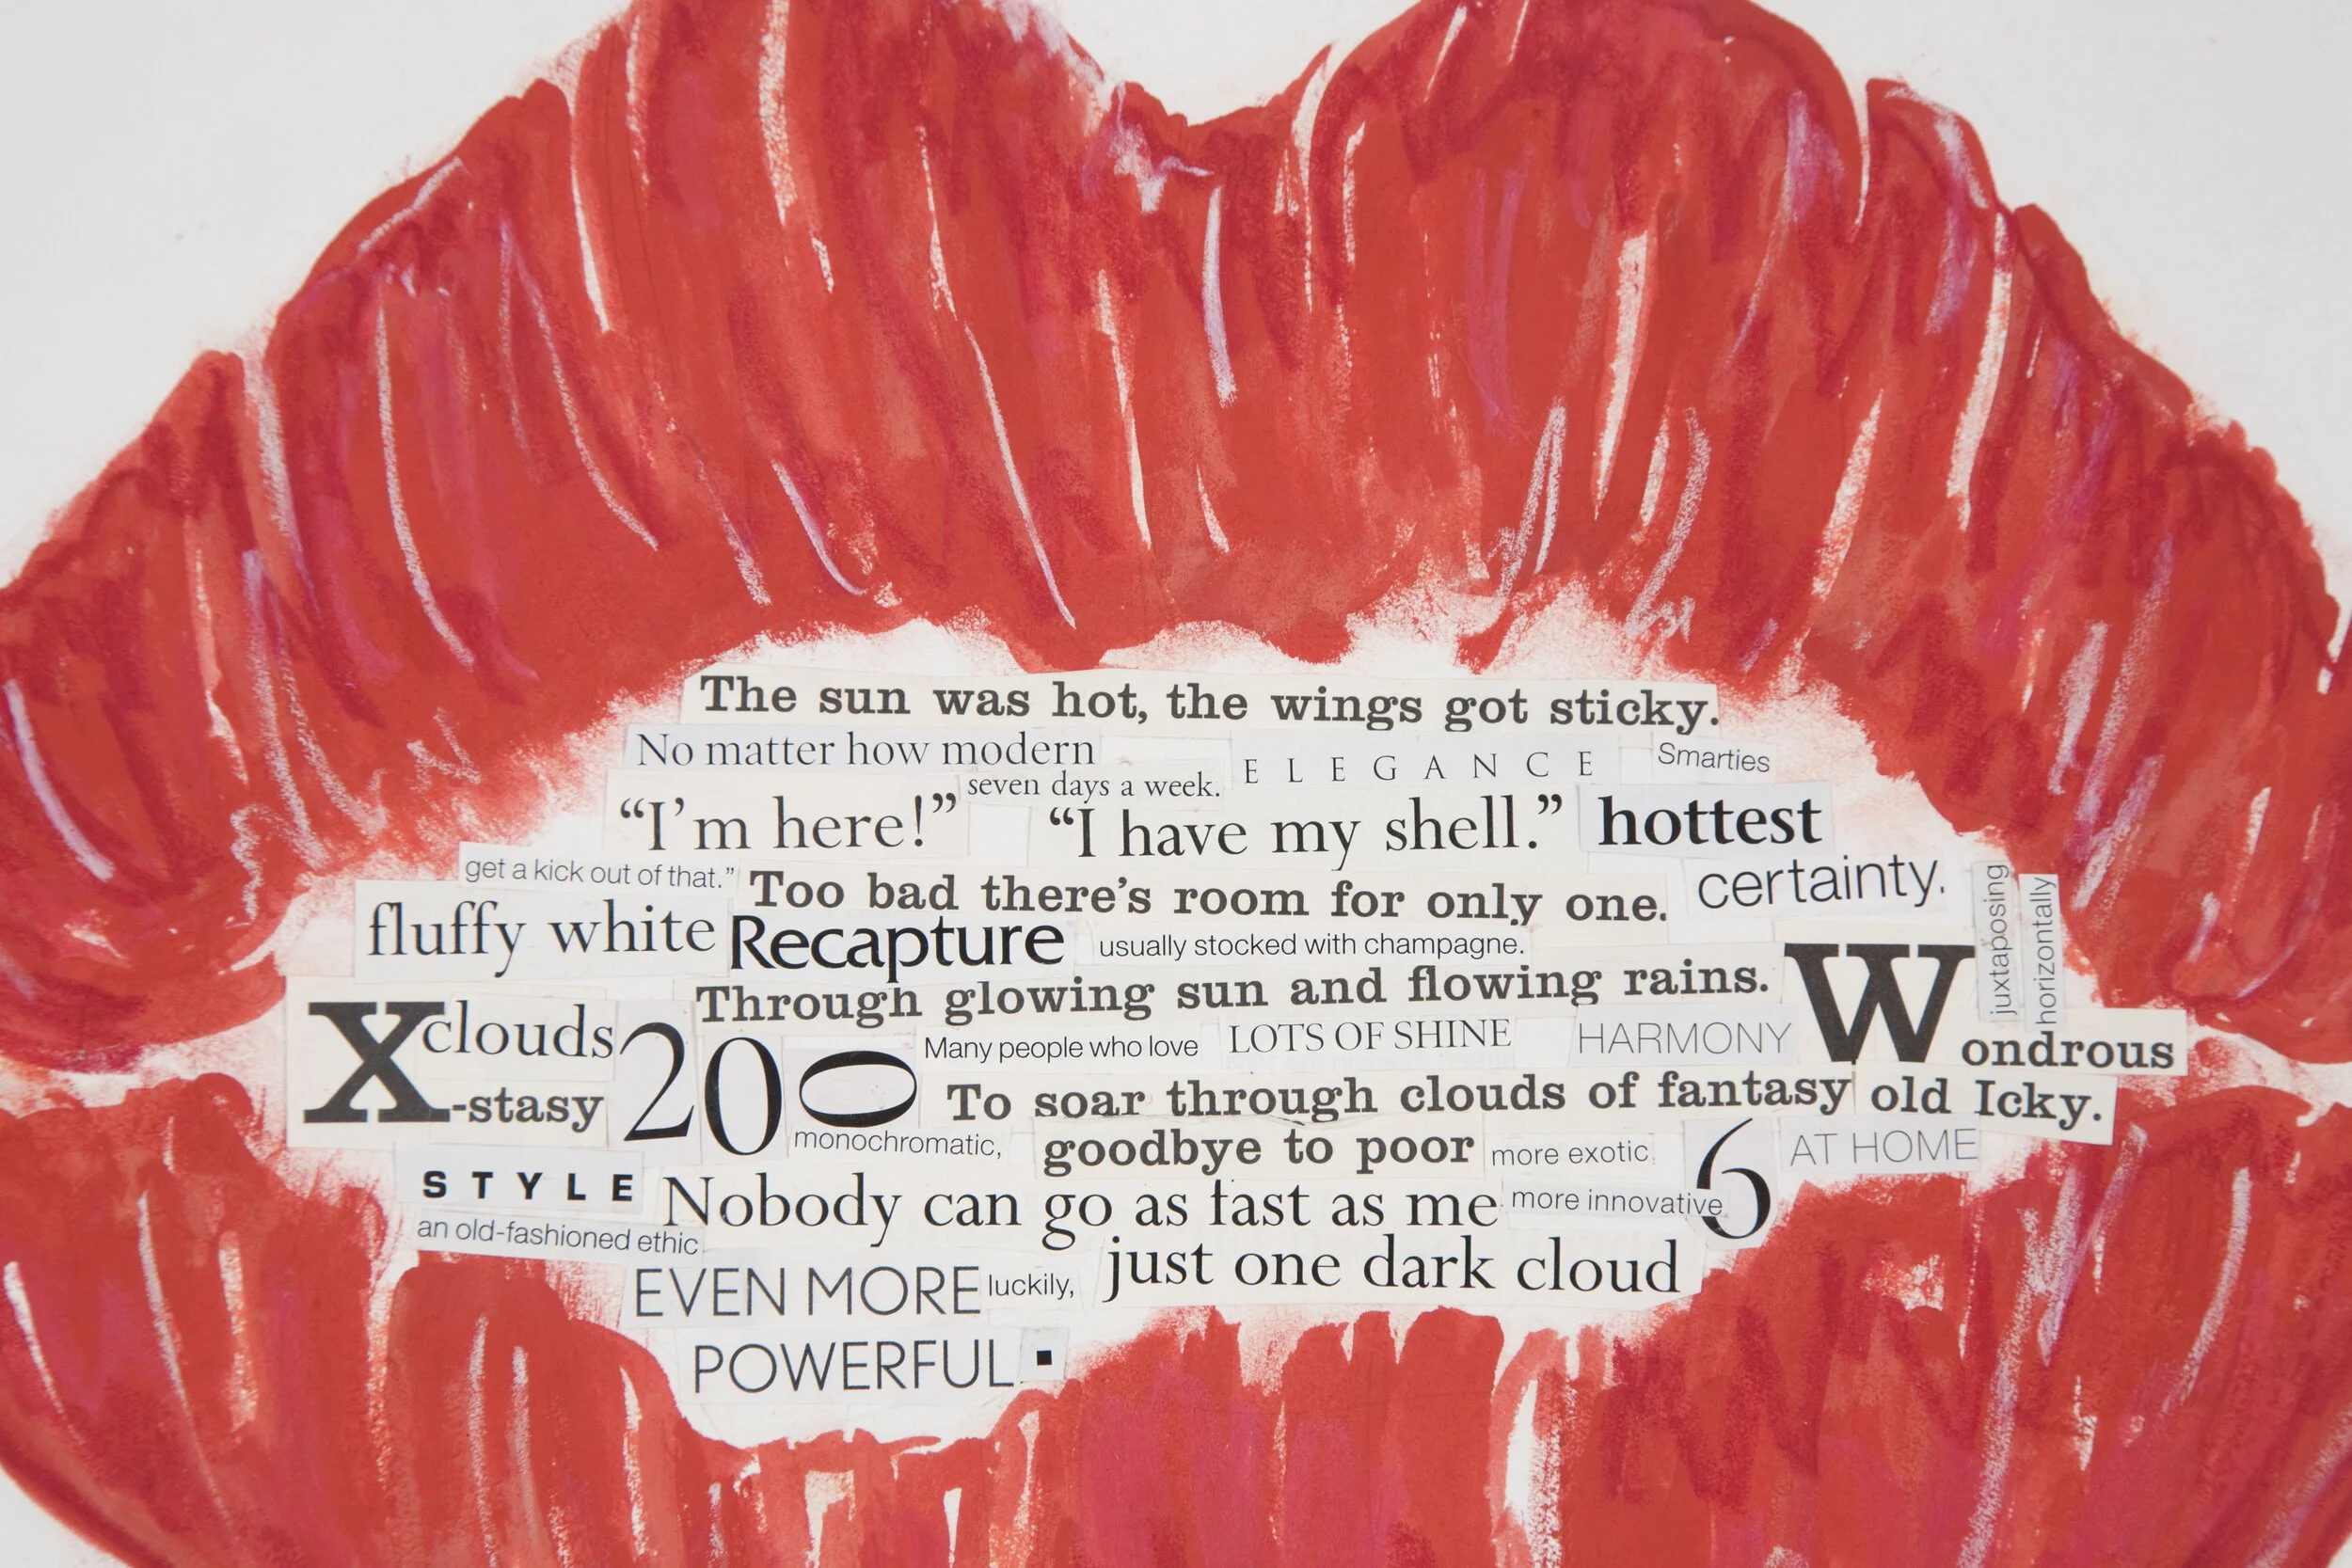 The sun was hot, the wings got sticky.
No matter how modern
seven days a week.
ELEGANCE
Smarties
“I’m here!”
“I have my shell.”
hottest
get a kick out of that.”
Too bad there’s room for only one.
certainty.
juxtaposing
horizontally
fluffy white
Recapture
usually stocked with champagne.
Through glowing sun and flowing rains.
Wondrous
X-stasy
clouds
200
Many people who love
LOTS OF SHINE
HARMONY
To soar through clouds of fantasy
old Icky.
monochromatic,
goodbye to poor
more exotic
6
AT HOME
STYLE
Nobody can go as fast as me
more innovative
an old-fashioned ethic
EVEN MORE
luckily,
just one dark cloud
POWERFUL